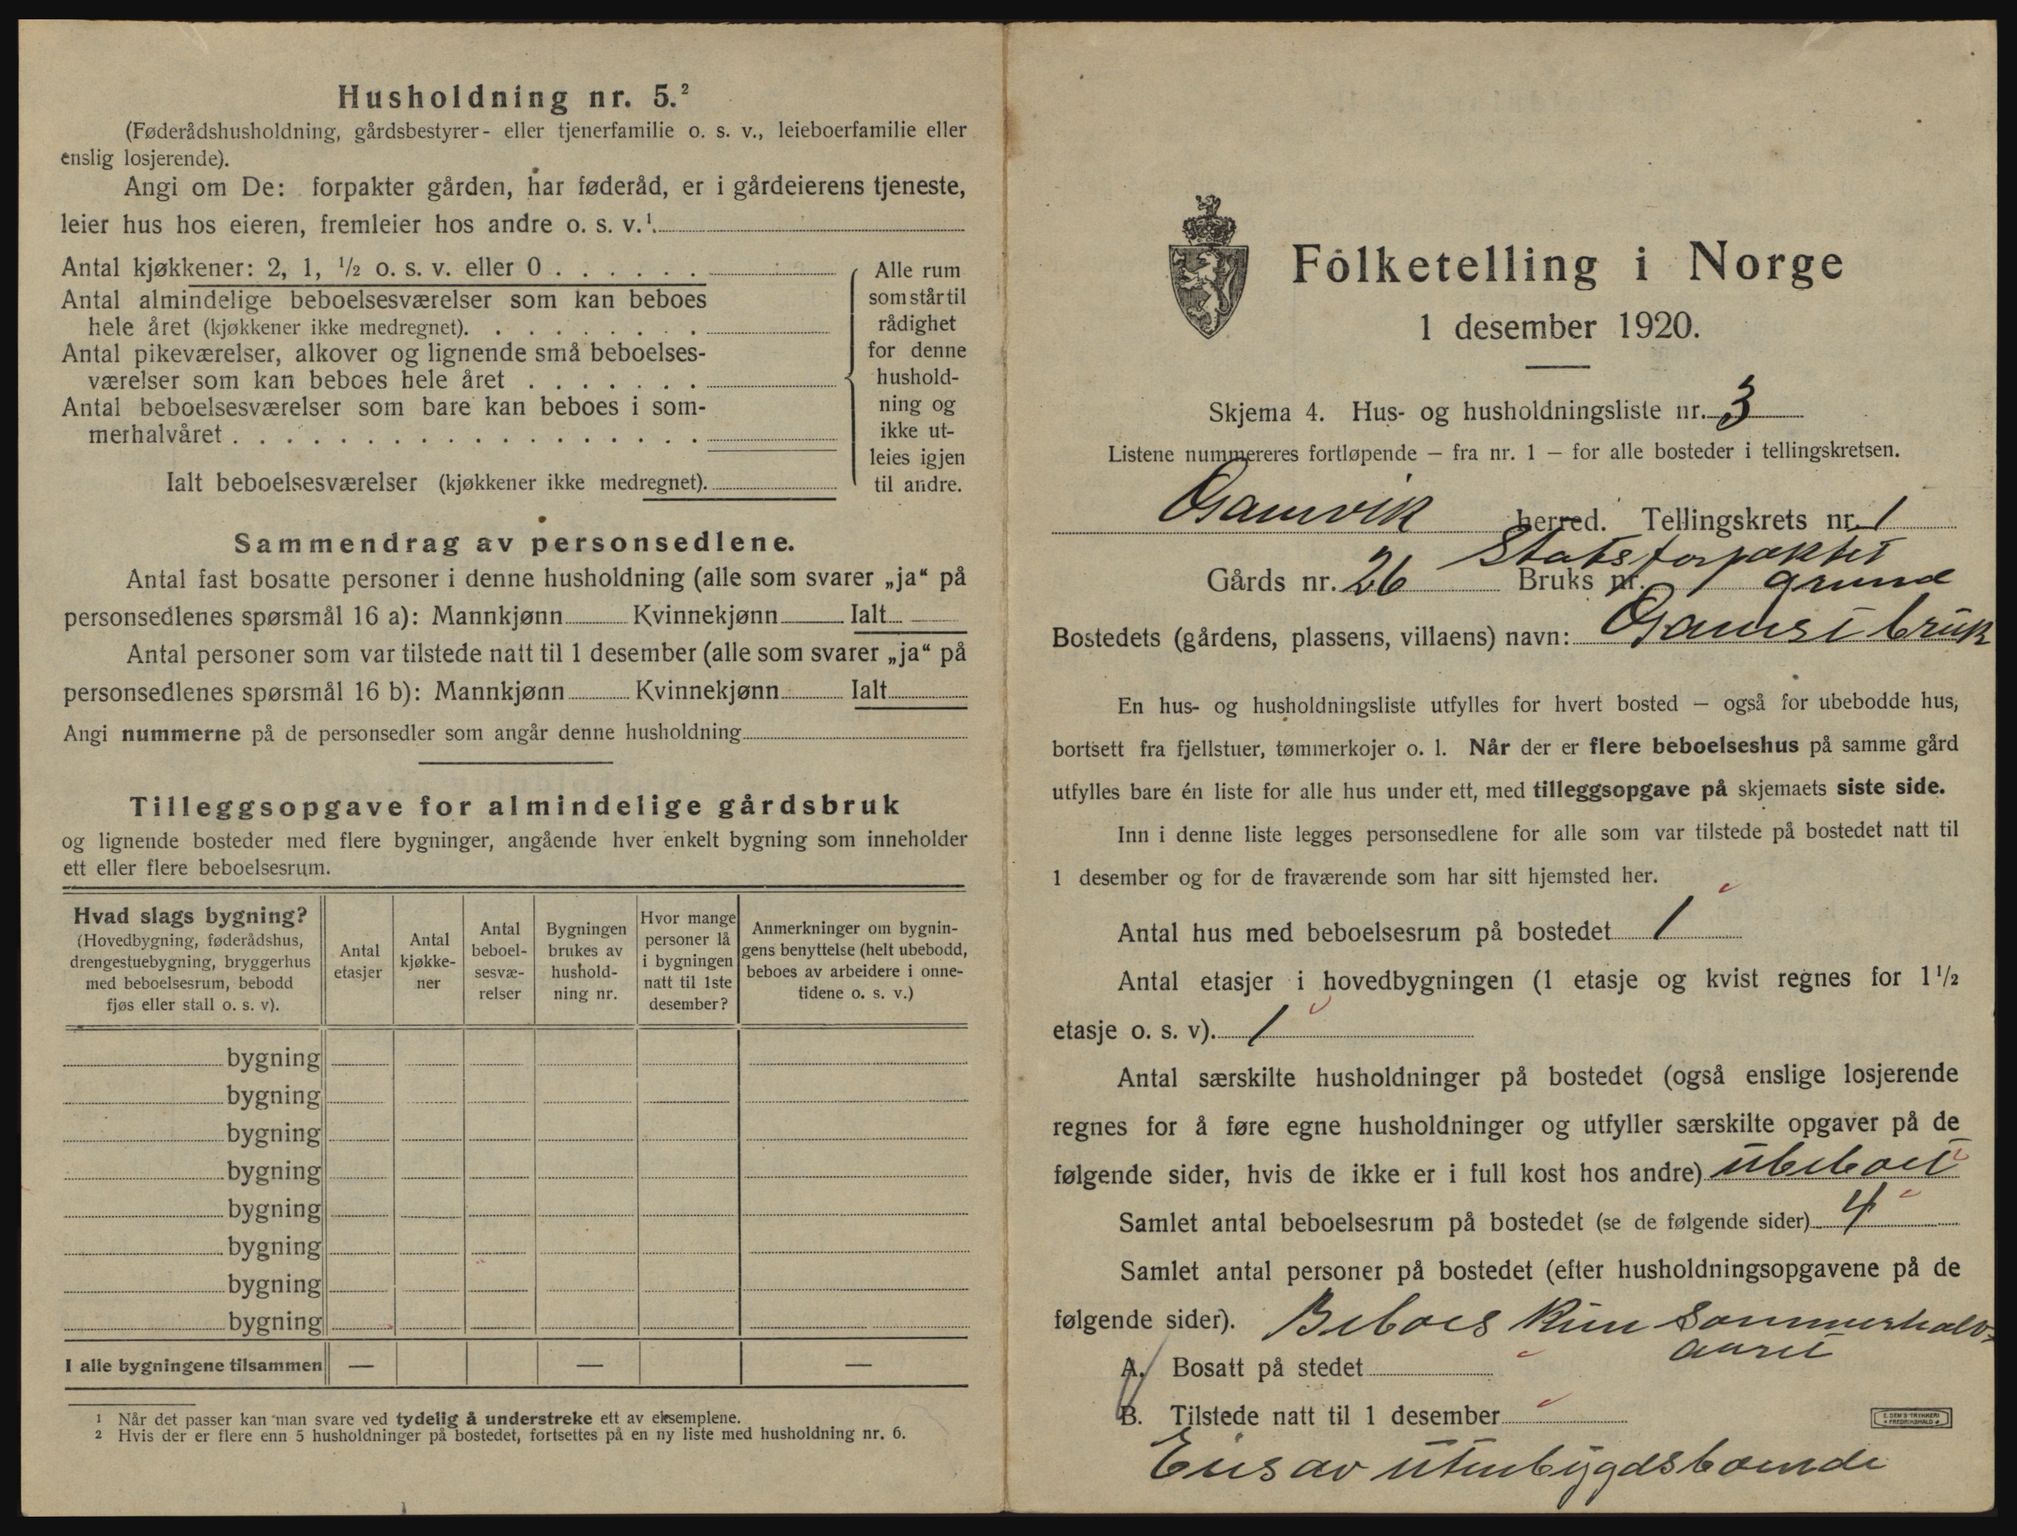 Husholdning nr. 5.²
(Føderådshusholdning, gårdsbestyrer- eller tjenerfamilie o. s. v., leieboerfamilie eller
enslig losjerende).
Angi om De: forpakter gården, har føderåd, er i gårdeierens tjeneste,
leier hus hos eieren, fremleier hos andre o. s. v.¹
Antal kjøkkener: 2, 1, ½ o. s. v. eller 0
Antal almindelige beboelsesværelser som kan beboes
hele året (kjøkkener ikke medregnet).
Antal pikeværelser, alkover og lignende små beboelses-
værelser som kan beboes hele året
Antal beboelsesværelser som bare kan beboes i som-
merhalvåret
Ialt beboelsesværelser (kjøkkener ikke medregnet).
Alle rum
som står til
rådighet
for denne
hushold-
ning og
ikke ut-
leies igjen
til andre.
Sammendrag av personsedlene.
Antal fast bosatte personer i denne husholdning (alle som svarer „ja“ på
personsedlenes spørsmål 16 a): Mannkjønn Kvinnekjønn Ialt
Antal personer som var tilstede natt til 1 desember (alle som svarer „ja“ på
personsedlenes spørsmål 16 b): Mannkjønn Kvinnekjønn Ialt
Angi nummerne på de personsedler som angår denne husholdning
Tilleggsopgave for almindelige gårdsbruk
og lignende bosteder med flere bygninger, angående hver enkelt bygning som inneholder
ett eller flere beboelsesrum.
Hvad slags bygning?
(Hovedbygning, føderådshus,
drengestuebygning, bryggerhus
med beboelsesrum, bebodd
fjøs eller stall o. s. v).
Antal
etasjer
Antal
kjøkke-
ner
Antal
beboel-
sesvæ-
relser
Bygningen
brukes av
hushold-
ning nr.
Hvor mange
personer lå
i bygningen
natt til 1ste
desember?
Anmerkninger om bygnin-
gens benyttelse (helt ubebodd,
beboes av arbeidere i onne-
tidene o. s. v.)
bygning
bygning
bygning
bygning
bygning
bygning
bygning
bygning
I alle bygningene tilsammen — — —
¹ Når det passer kan man svare ved tydelig å understreke ett av eksemplene.
² Hvis der er flere enn 5 husholdninger på bostedet, fortsettes på en ny liste med husholdning nr. 6.
Folketelling i Norge
1 desember 1920.
Skjema 4. Hus- og husholdningsliste nr. 3
Listene nummereres fortløpende — fra nr. 1 — for alle bosteder i tellingskretsen.
Gamvik herred. Tellingskrets nr. 1
Statsforpaktet
Gårds nr. 26 Bruks nr. grund
Bostedets (gårdens, plassens, villaens) navn: bruk
En hus- og husholdningsliste utfylles for hvert bosted — også for ubebodde hus,
bortsett fra fjellstuer, tømmerkojer o. l. Når der er flere beboelseshus på samme gård
utfylles bare én liste for alle hus under ett, med tilleggsopgave på skjemaets siste side.
Inn i denne liste legges personsedlene for alle som var tilstede på bostedet natt til
1 desember og for de fraværende som har sitt hjemsted her.
Antal hus med beboelsesrum på bostedet 1
Antal etasjer i hovedbygningen (1 etasje og kvist regnes for 1½
etasje o. s. v). 1
Antal særskilte husholdninger på bostedet (også enslige losjerende
regnes for å føre egne husholdninger og utfyller særskilte opgaver på de
følgende sider, hvis de ikke er i full kost hos andre) ubeboet
Samlet antal beboelsesrum på bostedet (se de følgende sider) 4
Samlet antal personer på bostedet (efter husholdningsopgavene på de
følgende sider). Beboes kun Sommerhalv-
aaret
A. Bosatt på stedet
B. Tilstede natt til 1 desember
Eies av utenbygdsboende
E. SEM'S TRYKKERI
FREDRIKSHALD